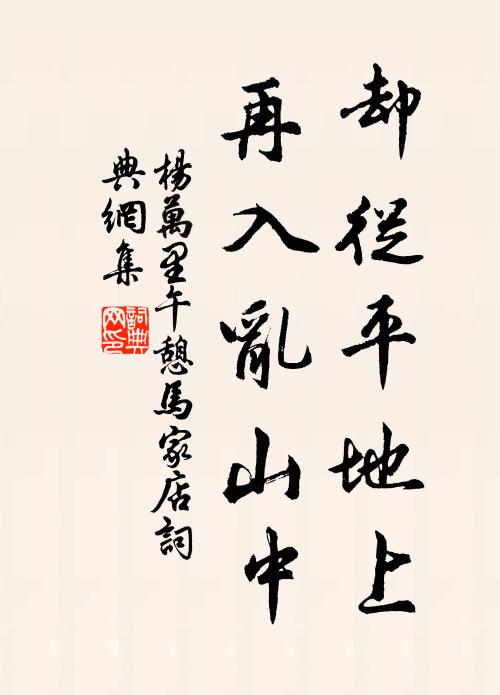 却從平地上
再入亂山中
楊萬里午憩馬家店詞
典網集
詞典
网印